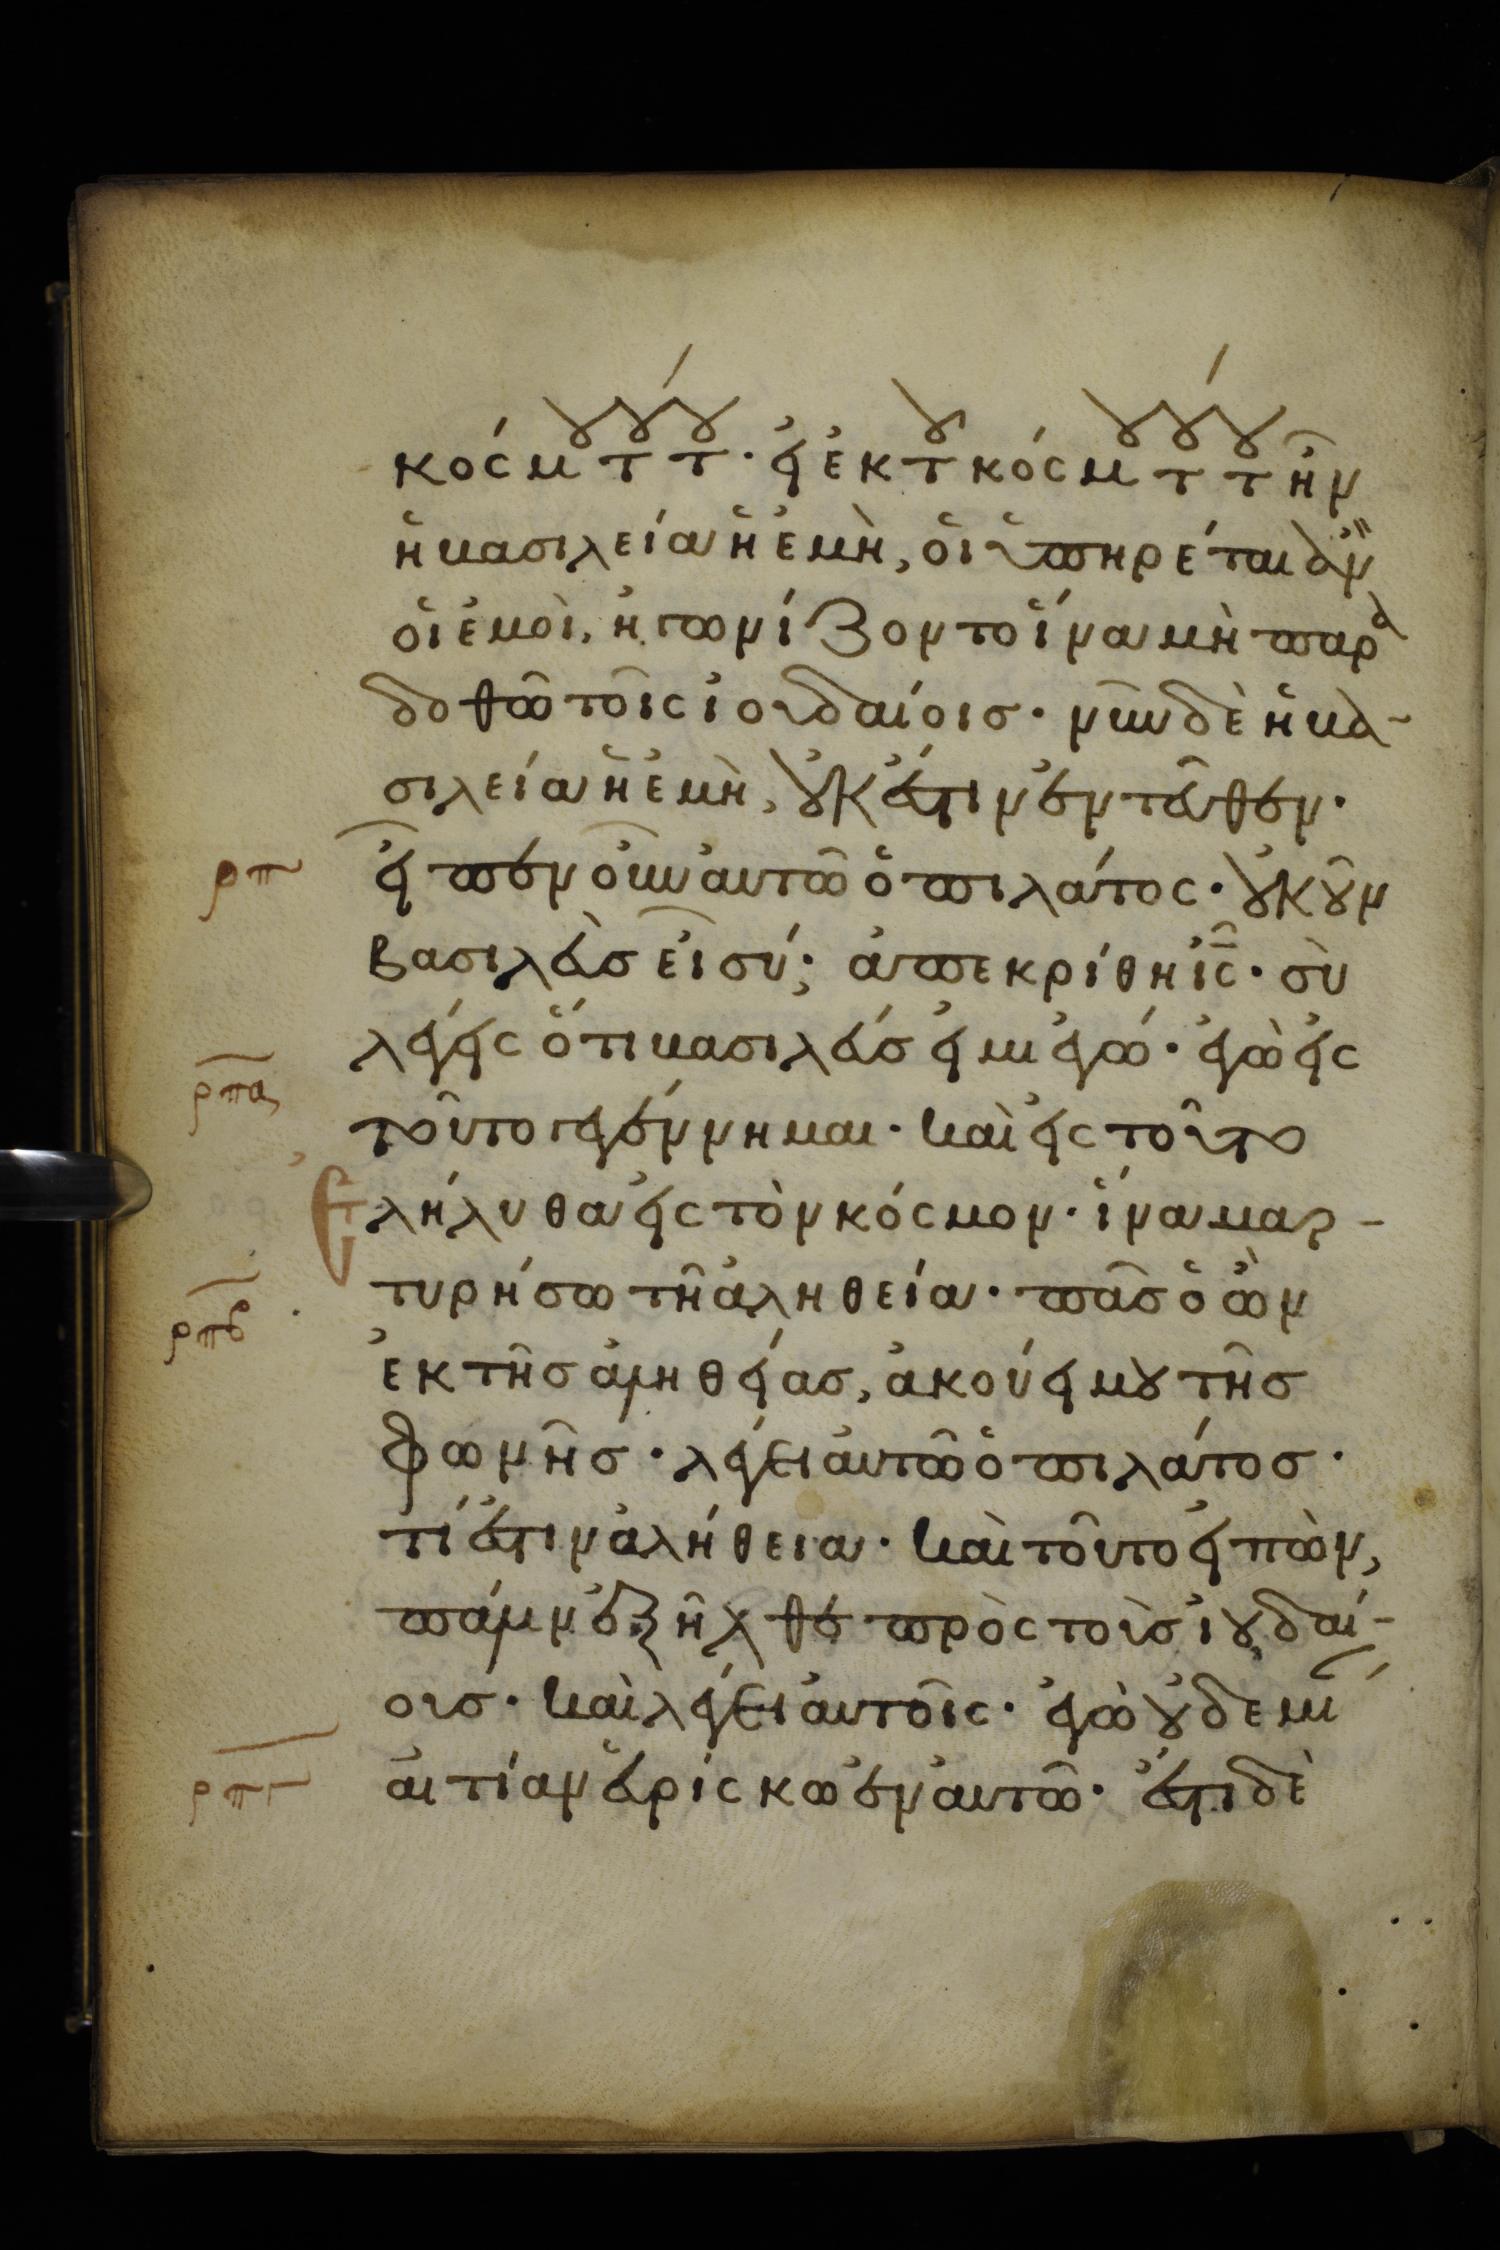 κόσμου τούτου· εἰ ἐκ τοῦ κόσμου τούτου ἦν
ἡ βασιλεία ἡ ἐμὴ, οἱ ὑπηρέται ἂν
οἱ ἐμοὶ, ἠγωνίζοντο ἵνα μὴ παρα
ρπ
δοθῶ τοῖς ἰουδαίοις· νῦν δὲ ἡ βα-
σιλεία ἡ ἐμὴ, οὐκ ἔστιν ἐντεῦθεν·
εἶπεν οὖν αὐτῶ ὁ πιλάτος· οὐκοῦν
βασιλεὺς εἶ σύ; ἀπεκρίθη ἰς· σὺ
λέγεις ὅτι βασιλεύς εἰμι ἐγώ· ἐγὼ εἰς
ρπα
τοῦτο γεγέννημαι· καὶ εἰς τοῦτο
ἐλήλυθα εἰς τὸν κόσμον· ἵνα μαρ-
τυρήσω τῆ ἀληθεία· πᾶς ὁ ὢν
ρπβ
ἐκ τῆς ἀληθείας, ἀκούει μου τῆς
φωνῆς· λέγει αὐτῶ ὁ πιλάτος·
τί ἐστιν ἀλήθεια· καὶ τοῦτο εἰπὼν,
πάλιν ἐξῆλθε πρὸς τοὺς ἰουδαί-
ους· καὶ λέγει αὐτοῖς· ἐγὼ οὐδεμί
ρπγ
αἰτίαν εὑρίσκω ἐν αὐτῶ· ἔστι δὲ